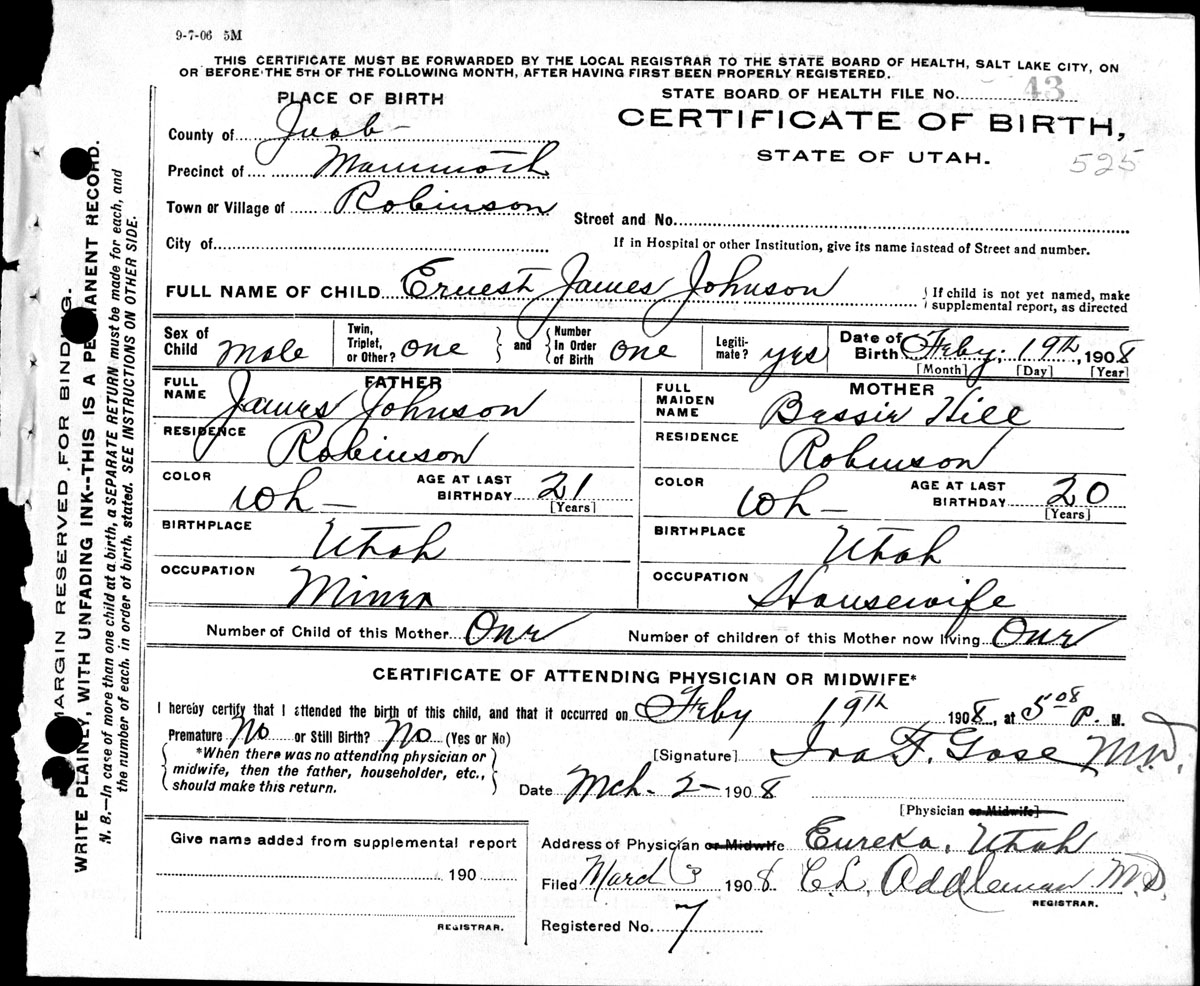 9-7-06 5M
THIS CERTIFICATE MUST BE FORWARDED BY THE LOCAL REGISTRAR TO THE STATE BOARD OF HEALTH, SALT LAKE CITY, ON
OR BEFORE THE 5TH OF THE FOLLOWING MONTH, AFTER HAVING FIRST BEEN PROPERLY REGISTERED.
PLACE OF BIRTH
STATE BOARD OF HEALTH FILE NO. 43
County of Juab
CERTIFICATE OF BIRTH,
STATE OF UTAH.
525
Precinct of Mammoth
Town or Village of Robinson
Street and No.
City of
If in Hospital or other Institution, give its name instead of Street and number.
FULL NAME OF CHILD Ernest James Johnson
{If child is not yet named, make
supplemental report, as directed
Sex of Child Male
Twin, Triplet, or Other? One
and
Number In Order of Birth One
Legiti-mate? yes
Date of Birth Feby. 19th, 1908
[Month] [Day] [Year]
FATHER
FULL NAME James Johnson
RESIDENCE Robinson
COLOR Wh-
AGE AT LAST BIRTHDAY 21
[Years]
BIRTHPLACE Utah
OCCUPATION Miner
MOTHER
FULL MAIDEN NAME Bessie Hill
RESIDENCE Robinson
COLOR Wh-
AGE AT LAST BIRTHDAY 20
[Years]
BIRTHPLACE Utah
OCCUPATION Housewife
Number of Child of this Mother One
Number of children of this Mother now living One
CERTIFICATE OF ATTENDING PHYSICIAN OR MIDWIFE*
I hereby certify that I attended the birth of this child, and that it occurred on Feby 19th 1908, at 5 08 P. M.
Premature No or Still Birth? No (Yes or No)
{*When there was no attending physician or
midwife, then the father, householder, etc.,
should make this return.}
[Signature] Ira F. Gose M.D.
Date Mch. 2- 1908
[Physician or Midwife]
Give name added from supplemental report
190
REGISTRAR.
Address of Physician or Midwife Eureka, Utah
Filed March 3 1908 C.L. Addleman M.D.
REGISTRAR.
Registered No. 7
MARGIN RESERVED FOR BINDING.
WRITE PLAINLY, WITH UNFADING INK--THIS IS A PERMANENT RECORD.
N. B.—In case of more than one child at a birth, a SEPARATE RETURN must be made for each, and
the number of each, in order of birth, stated. SEE INSTRUCTIONS ON OTHER SIDE.